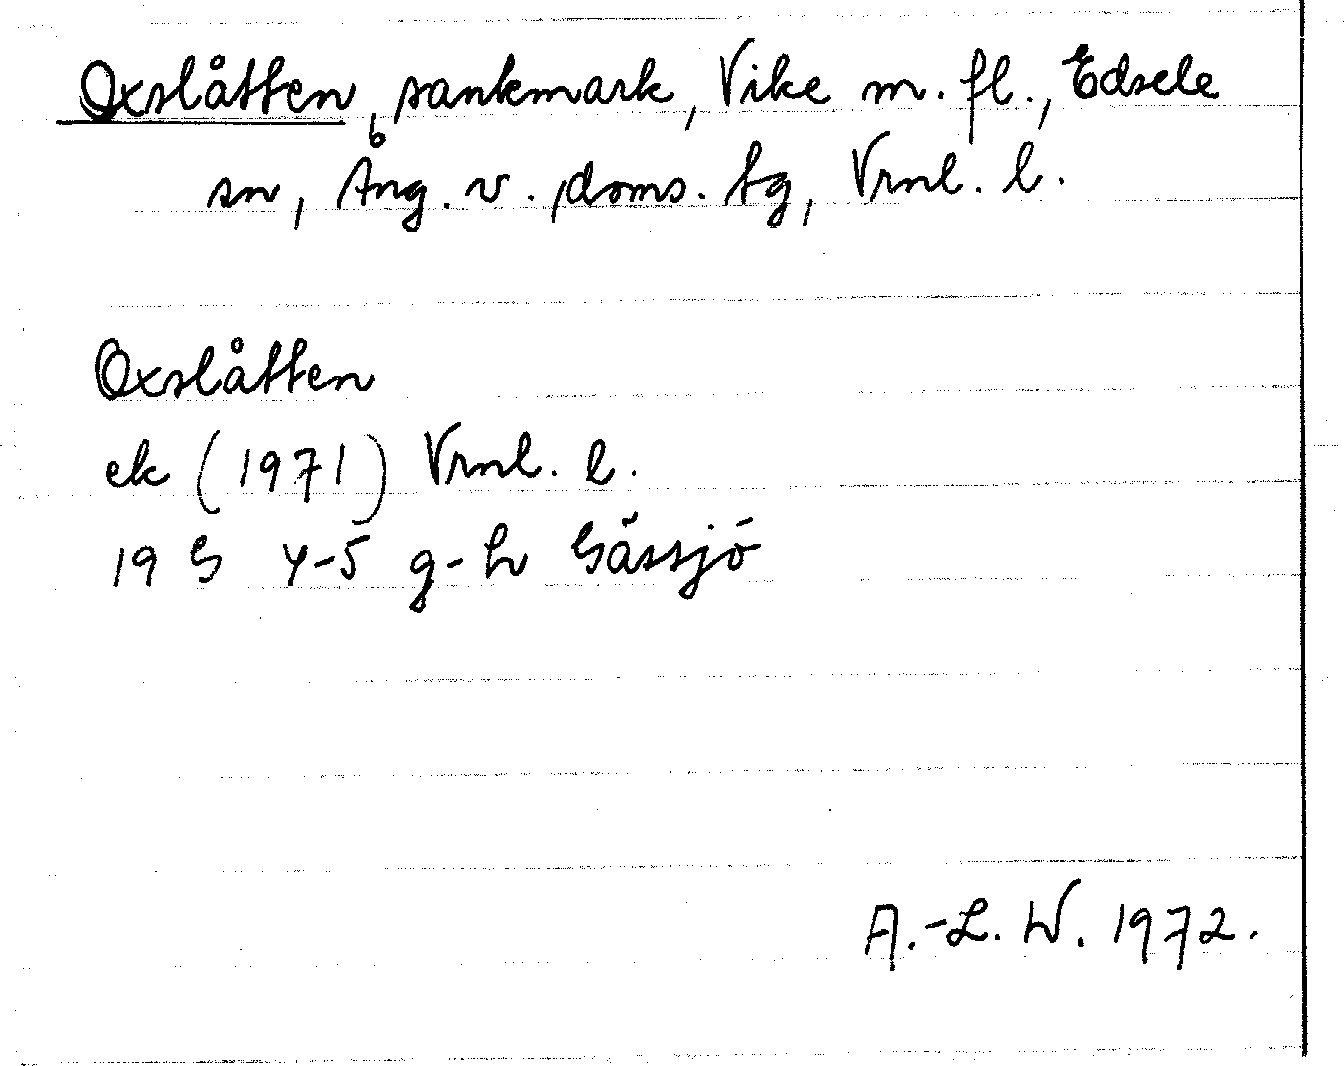 Oxslåtten, sankmark, Vike m. fl., Edsele
sn, Ång. v. doms. tg, Vrnl. l.
Oxslåtten
ek (1971) Vrnl. l.
19 G 4-5 g-h Gåssjö
A.-L. W. 1972.